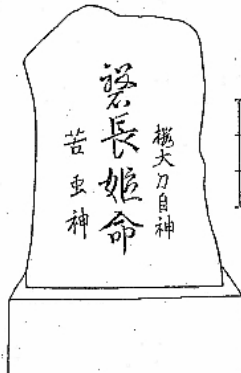 桜大刀自神
磐長姫命
苔虫神